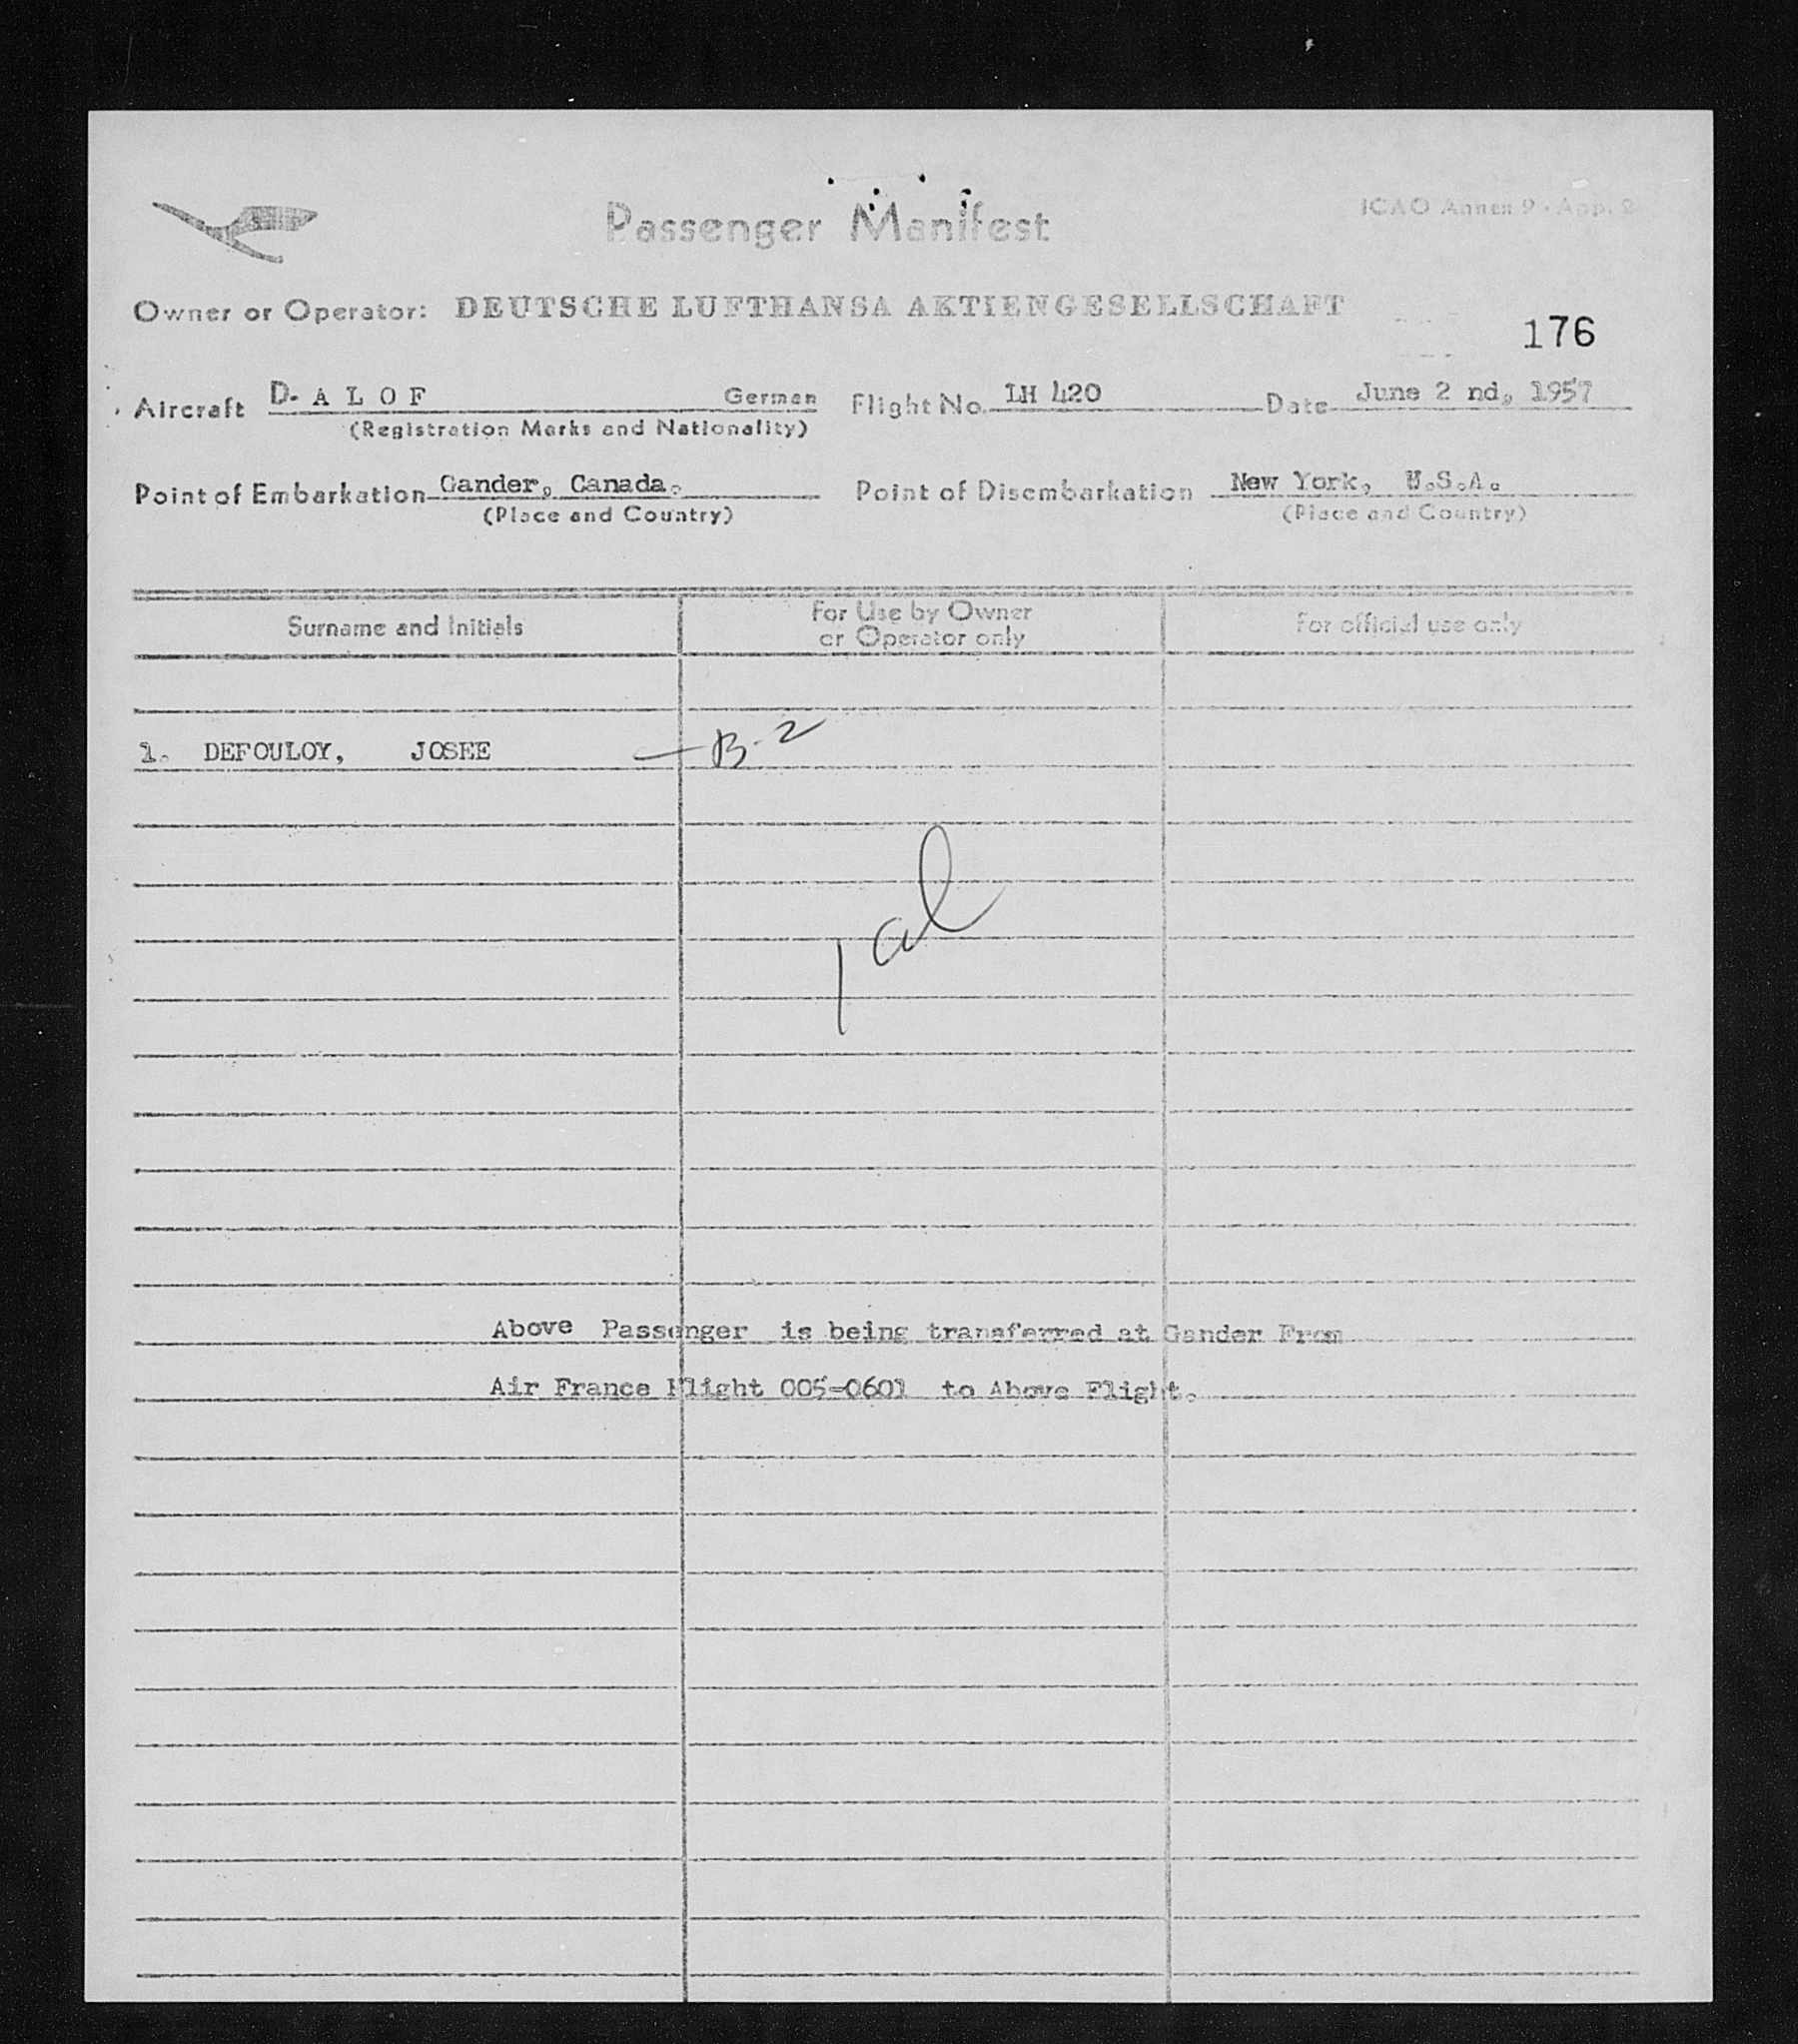 Passenger Manifest
ICAO Annex 9 - App. 2
Owner or Operator: DEUTSCHE LUFTHANSA AKTIENGESELLSCHAFT
176
Aircraft D- A L O F German Flight No. LH 420 Date June 2 nd, 1957
(Registration Marks and Nationality)
Point of Embarkation Gander, Canada. Point of Disembarkation New York, U.S.A.
(Place and Country) (Place and Country)
Surname and Initials For Use by Owner or Operator only For official use only
1. DEFOULOY, JOSEE — B-2
1 al
Above Passenger is being transferred at Gander From
Air France Flight 005-0601 to Above Flight.